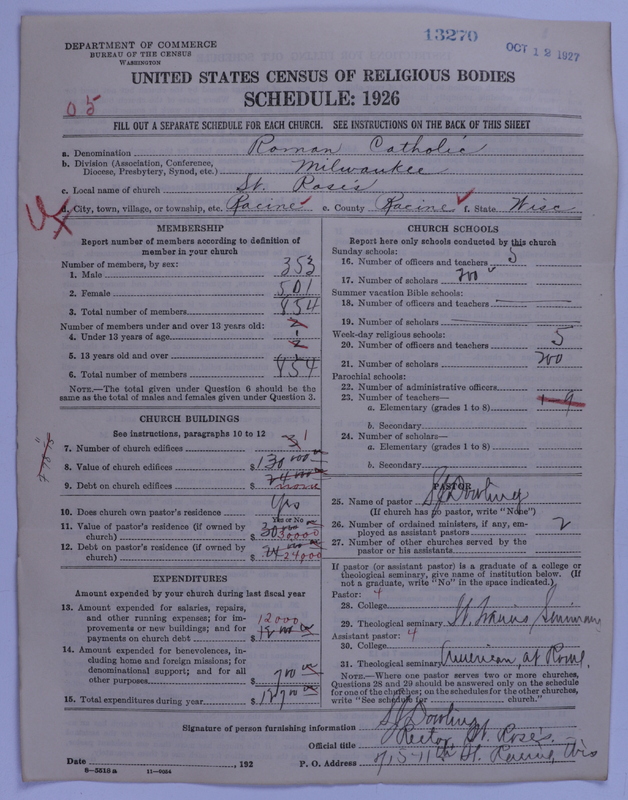 13270
OCT 12 1927
DEPARTMENT OF COMMERCE
BUREAU OF THE CENSUS
WASHINGTON
UNITED STATES CENSUS OF RELIGIOUS BODIES
SCHEDULE: 1926
05
FILL OUT A SEPARATE SCHEDULE FOR EACH CHURCH. SEE INSTRUCTIONS ON THE BACK OF THIS SHEET
a. Denomination Roman Catholic
b. Division (Association, Conference, Diocese, Presbytery, Synod, etc.) Milwaukee
c. Local name of church St. Rose's
d. City, town, village, or township, etc. Racine e. County Racine f. State Wisc
MEMBERSHIP
Report number of members according to definition of member in your church
Number of members, by sex:
1. Male 353
2. Female 501
3. Total number of members 854
Number of members under and over 13 years old:
4. Under 13 years of age
5. 13 years old and over
6. Total number of members 854
NOTE.—The total given under Question 6 should be the same as the total of males and females given under Question 3.
CHURCH BUILDINGS
See instructions, paragraphs 10 to 12
7. Number of church edifices 1
8. Value of church edifices $ 130000
9. Debt on church edifices $ none
10. Does church own pastor's residence? Yes
Yes or No
11. Value of pastor's residence (if owned by church) $ 30000
12. Debt on pastor's residence (if owned by church) $ 24000
EXPENDITURES
Amount expended by your church during last fiscal year
13. Amount expended for salaries, repairs, and other running expenses; for improvements or new buildings; and for payments on church debt $ 12000
14. Amount expended for benevolences, including home and foreign missions; for denominational support; and for all other purposes $ 700
15. Total expenditures during year $ 12700
CHURCH SCHOOLS
Report here only schools conducted by this church
Sunday schools:
16. Number of officers and teachers 5
17. Number of scholars 200
Summer vacation Bible schools:
18. Number of officers and teachers
19. Number of scholars
Week-day religious schools:
20. Number of officers and teachers 5
21. Number of scholars 200
Parochial schools:
22. Number of administrative officers
23. Number of teachers—
a. Elementary (grades 1 to 8)
b. Secondary
24. Number of scholars—
a. Elementary (grades 1 to 8)
b. Secondary
PASTOR
25. Name of pastor Dowling
(If church has no pastor, write "None")
26. Number of ordained ministers, if any, employed as assistant pastors 2
27. Number of other churches served by the pastor or his assistants
If pastor (or assistant pastor) is a graduate of a college or theological seminary, give name of institution below. (If not a graduate, write "No" in the space indicated.)
Pastor: 4
28. College
29. Theological seminary St. Francis Seminary
Assistant pastor: 4
30. College
31. Theological seminary American at Rome.
NOTE.—Where one pastor serves two or more churches, Questions 28 and 29 should be answered only on the schedule for one of the churches; on the schedules for the other churches, write "See schedule for church."
Signature of person furnishing information Dowling
Official title Rector St. Rose's
Date , 192 P. O. Address 715-11th St. Racine, Wis
8—5518a 11—9064